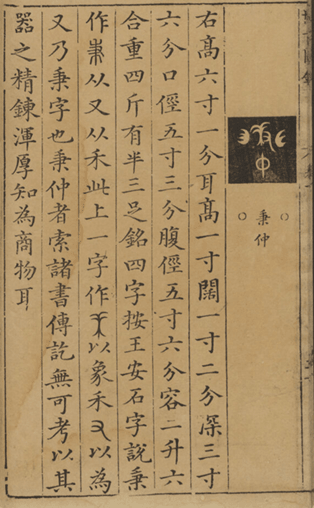 秉仲
右髙六寸一分耳髙一寸闊一寸二分深三寸
六分口俓五寸三分腹俓五寸六分容二升六
合重四斤有半三足銘四字按王安石字說秉
作从又从禾此上一字作以象禾以為
又乃秉字也秉仲者索諸書傳訖無可考以其
器之精鍊渾厚知為商物耳